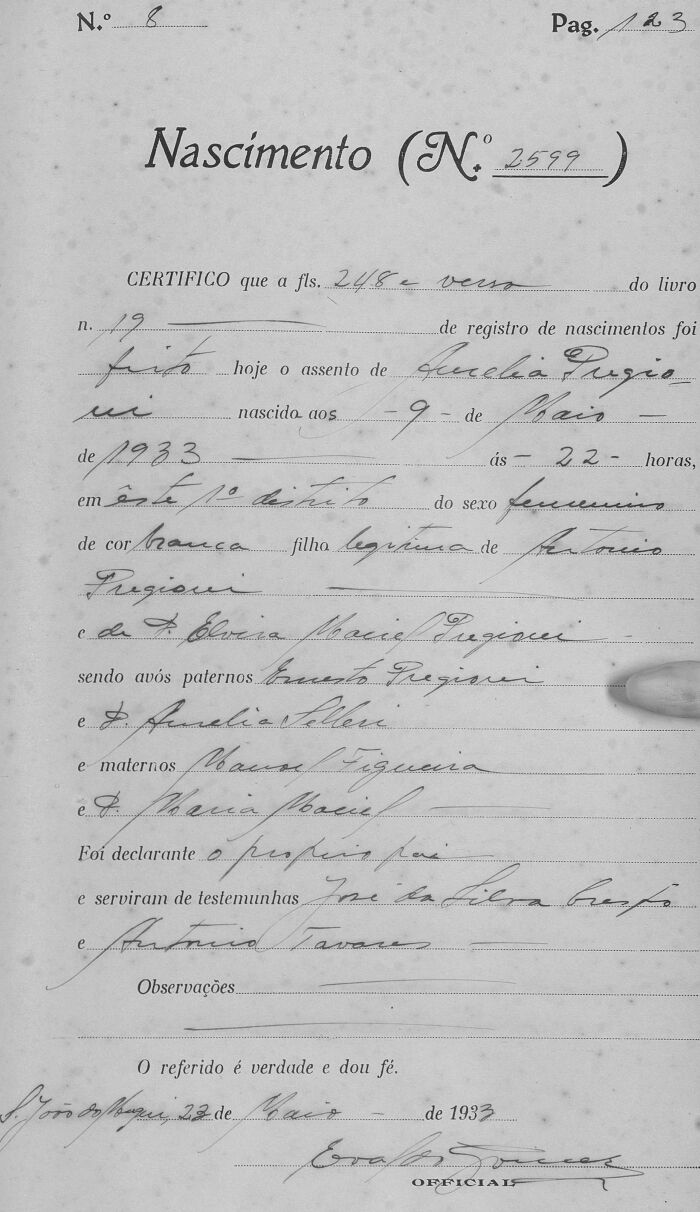 N.º 8 Pag. 123
Nascimento (N.º 2599)
CERTIFICO que a fls. 248 e verso do livro
n. 19 de registro de nascimentos foi
feito hoje o assento de Aurelia Pregio-
nei nascida aos - 9 - de Maio -
de 1933 ás - 22 - horas,
em êste 1º distrito do sexo femenino
de cor branca filha legitima de Antonio
Pregionei
e de D. Elvira Maciel Pregionei -
sendo avós paternos Ernesto Pregionei
e D. Aurelia Selleri
e maternos Manoel Figueira
e D. Maria Maciel
Foi declarante o proprio pai
e serviram de testemunhas José da Silva Crespo
e Antonio Tavares
Observações
O referido é verdade e dou fé.
S. João do Muqui, 23 de Maio - de 1933
Evaldo Gomes
OFFICIAL